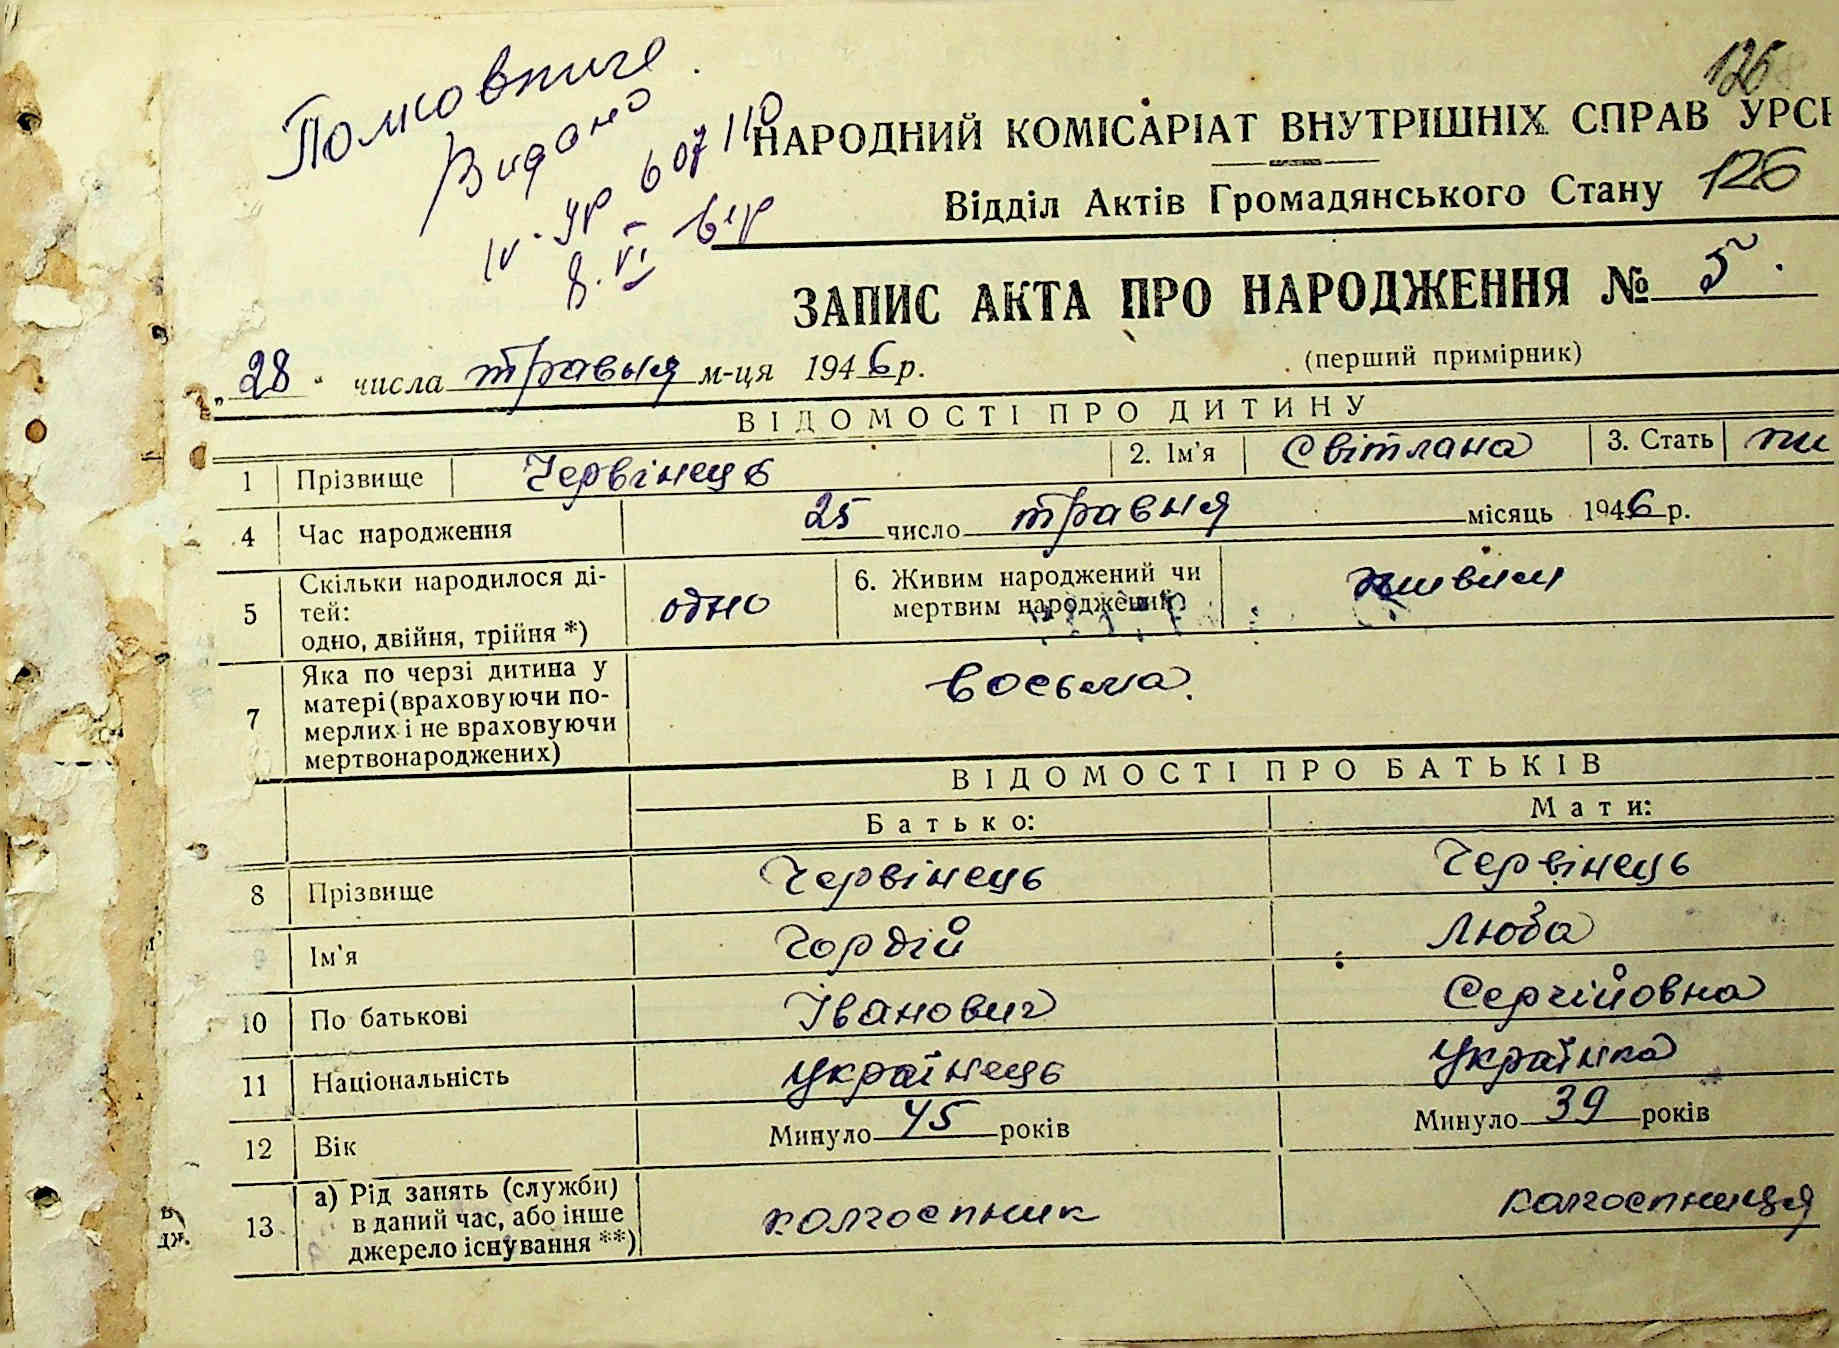 126
Повторне
Видано
НАРОДНИЙ КОМІСАРІАТ ВНУТРІШНІХ СПРАВ УРСР
IV-УР 607110
Відділ Актів Громадянського Стану 126
8.VI
ЗАПИС АКТА ПРО НАРОДЖЕННЯ № 5.
(перший примірник)
„28" числа травня м-ця 1946 р.
ВІДОМОСТІ ПРО ДИТИНУ
1 Прізвище Червінець 2. Ім'я Світлана 3. Стать жи
4 Час народження 25 число травня місяць 1946 р.
5 Скільки народилося ді-
тей:
одно, двійня, трійня *) одно
6. Живим народжений чи
мертвим народжений. живим
7 Яка по черзі дитина у
матері (враховуючи по-
мерлих і не враховуючи
мертвонароджених) восьма.
ВІДОМОСТІ ПРО БАТЬКІВ
Батько: Мати:
8 Прізвище Червінець Червінець
9 Ім'я Гордій Люба
10 По батькові Іванович Сергійовна
11 Національність українець українка
12 Вік Минуло 45 років Минуло 39 років
13 а) Рід занять (служби)
в даний час, або інше
джерело існування **) колгоспник колгоспниця
дж.